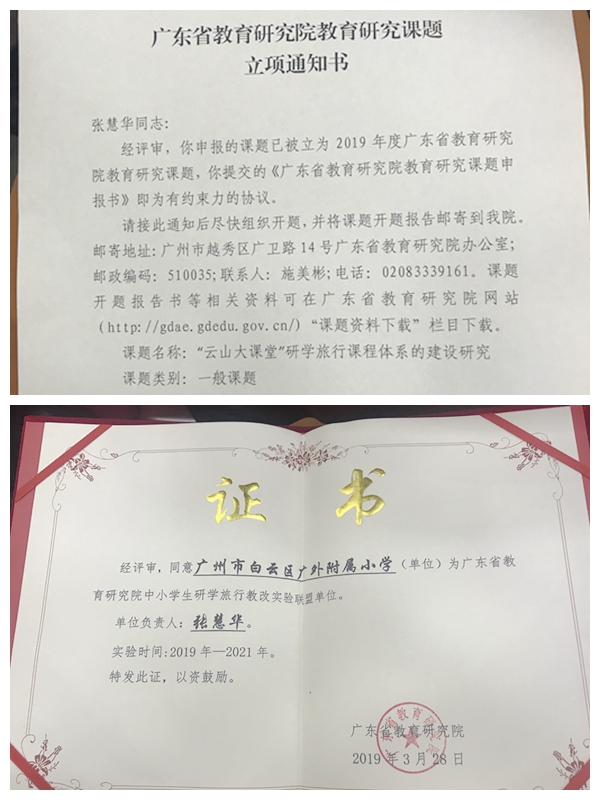 广东省教育研究院教育研究课题
立项通知书
张慧华同志：
经评审，你申报的课题已被立为 2019 年度广东省教育研究
院教育研究课题，你提交的《广东省教育研究院教育研究课题申
报书》即为有约束力的协议。
请接此通知后尽快组织开题，并将课题开题报告邮寄到我院。
邮寄地址：广州市越秀区广卫路 14 号广东省教育研究院办公室；
邮政编码：510035；联系人：施美彬；电话：02083339161。课题
开题报告书等相关资料可在广东省教育研究院网站
（http://gdae.gdedu.gov.cn/）“课题资料下载”栏目下载。
课题名称：“云山大课堂”研学旅行课程体系的建设研究
课题类别：一般课题
证书
经评审，同意广州市白云区广外附属小学（单位）为广东省教
育研究院中小学生研学旅行教改实验联盟单位。
单位负责人：张慧华。
实验时间：2019 年—2021 年。
特发此证，以资鼓励。
广东省教育研究院
2019 年 3 月 28 日
广东省教育研究院